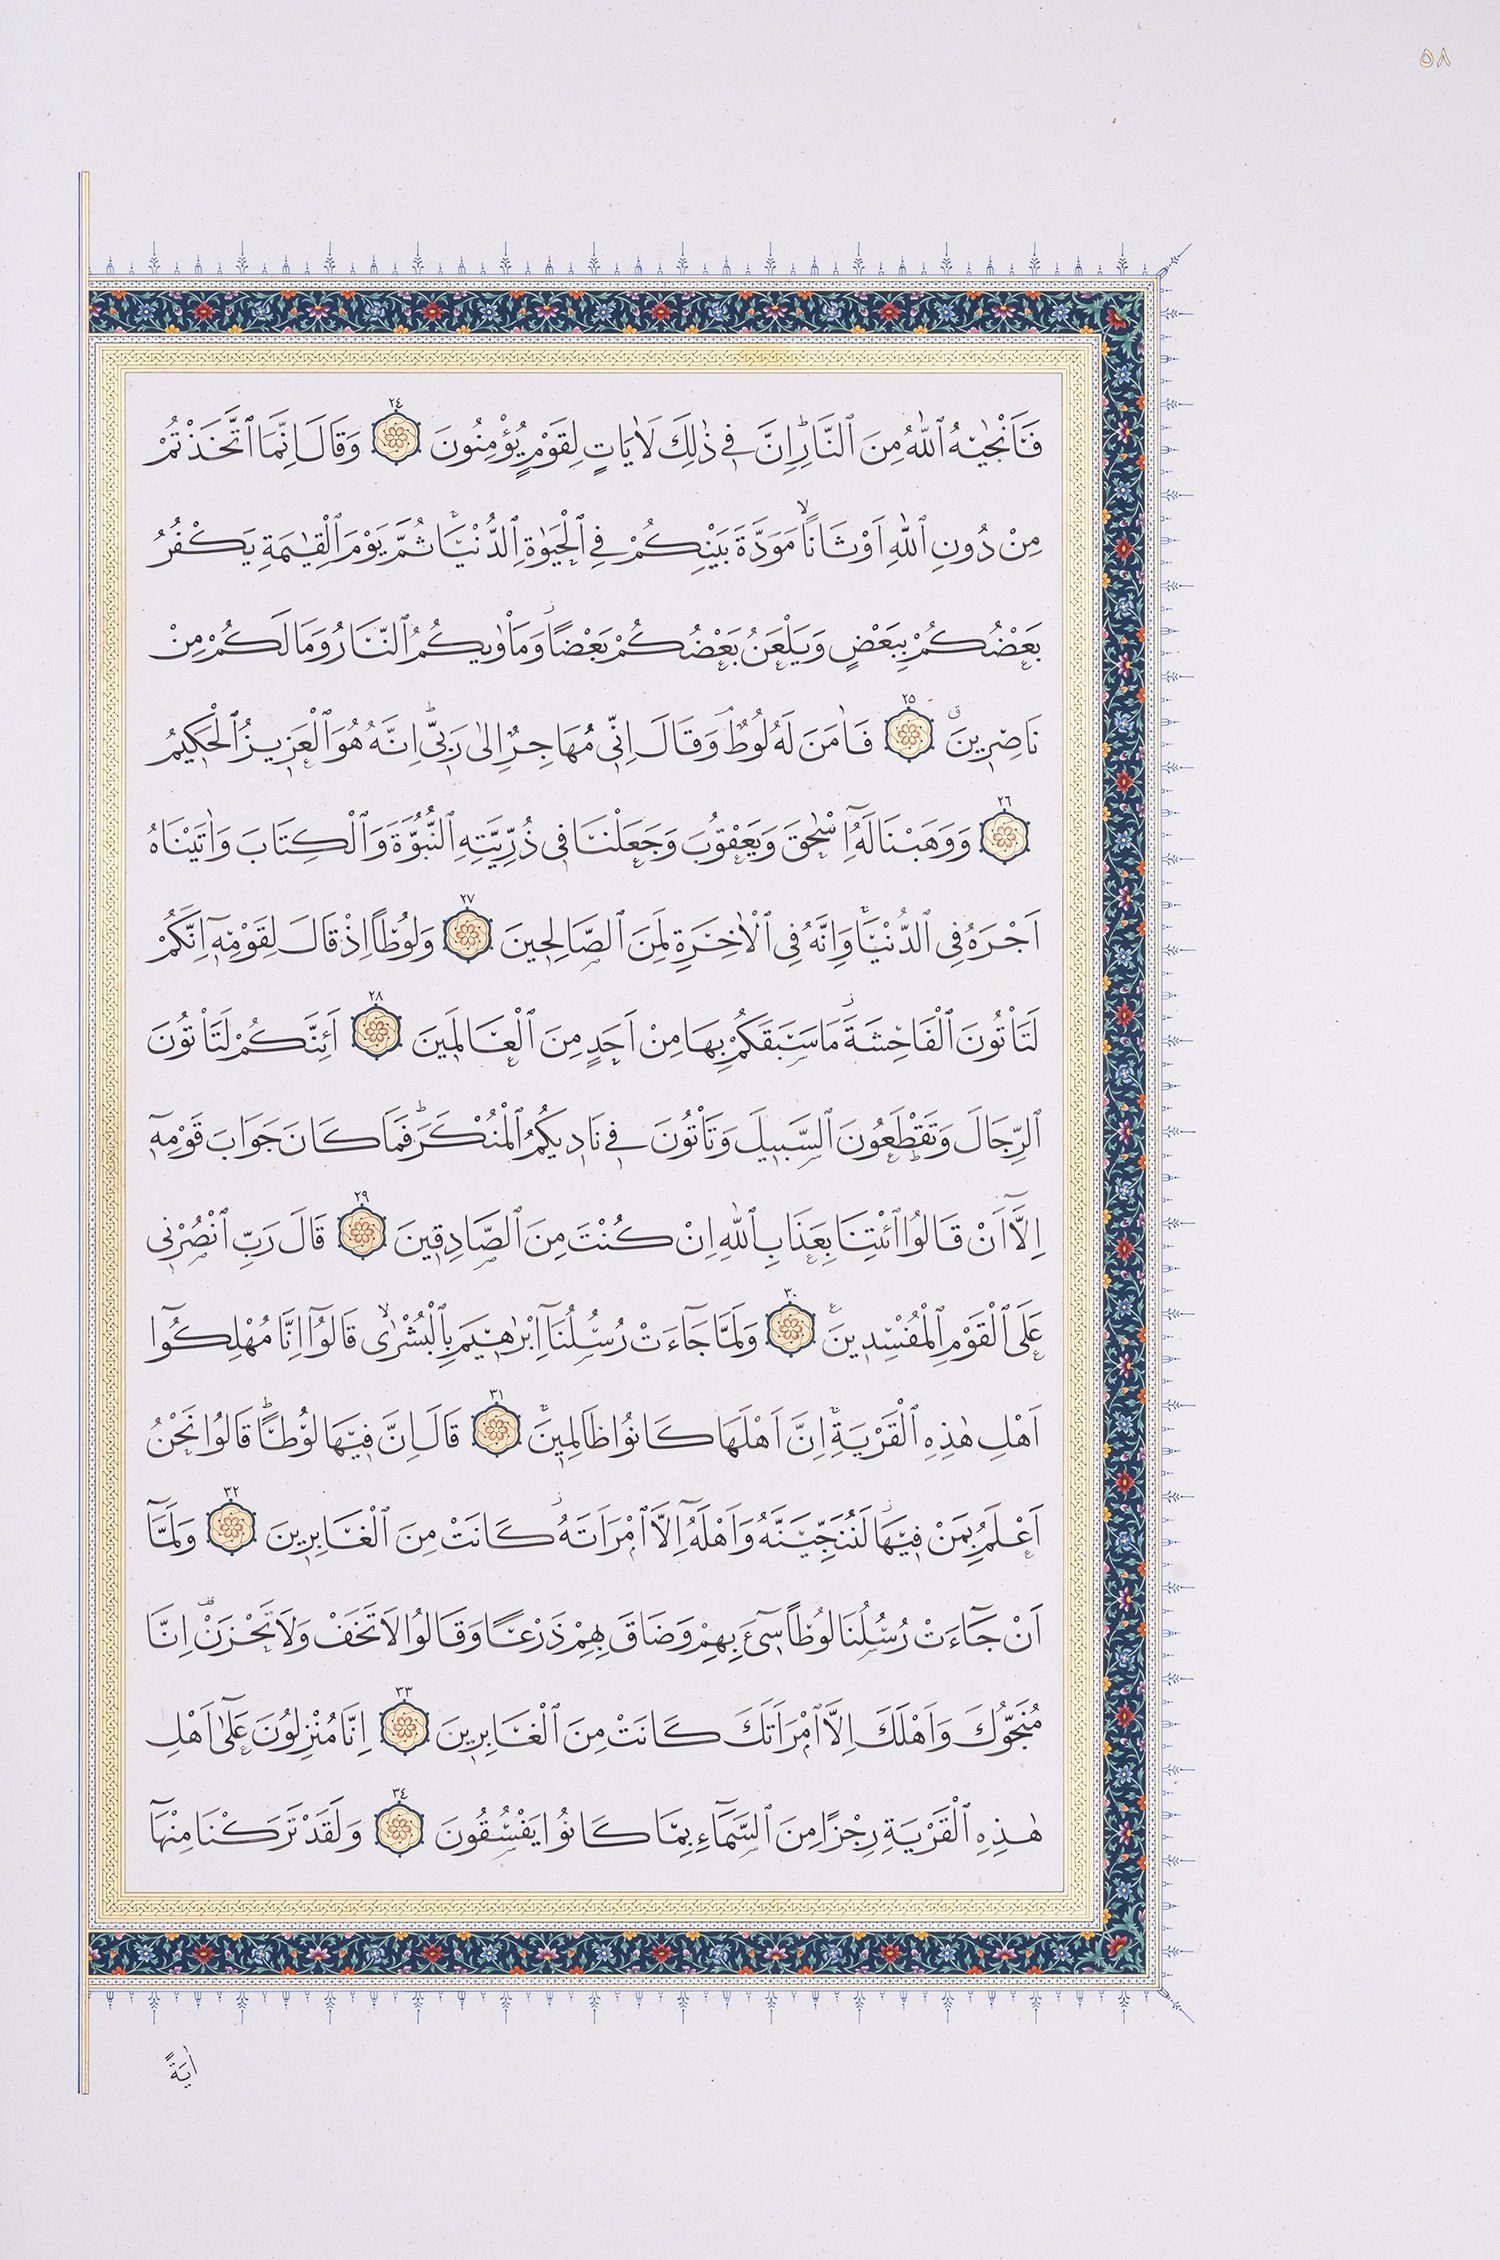 ٥٨
فَاَنْجٰيهُ ٱللّٰهُ مِنَ ٱلنَّارِۜ اِنَّ فٖي ذٰلِكَ لَاٰيَاتٍ لِقَوْمٍ يُؤْمِنُونَ ٢٤ وَقَالَ اِنَّمَا ٱتَّخَذْتُمْ
مِنْ دُونِ ٱللّٰهِ اَوْثَانًاۙ مَوَدَّةَ بَيْنِكُمْ فِي ٱلْحَيٰوةِ ٱلدُّنْيَاۚ ثُمَّ يَوْمَ ٱلْقِيٰمَةِ يَكْفُرُ
بَعْضُكُمْ بِبَعْضٍ وَيَلْعَنُ بَعْضُكُمْ بَعْضًاۘ وَمَأْوٰيكُمُ ٱلنَّارُ وَمَا لَكُمْ مِنْ
نَاصِرٖينَۗ ٢٥ فَاٰمَنَ لَهُ لُوطٌۢ وَقَالَ اِنّٖي مُهَاجِرٌ اِلٰى رَبّٖيۜ اِنَّهُ هُوَ ٱلْعَزٖيزُ ٱلْحَكٖيمُ
٢٦ وَوَهَبْنَا لَهُٓ اِسْحٰقَ وَيَعْقُوبَ وَجَعَلْنَا فٖي ذُرِّيَّتِهِ ٱلنُّبُوَّةَ وَٱلْكِتَابَ وَاٰتَيْنَاهُ
اَجْرَهُ فِي ٱلدُّنْيَاۚ وَاِنَّهُ فِي ٱلْاٰخِرَةِ لَمِنَ ٱلصَّالِحٖينَ ٢٧ وَلُوطًا اِذْ قَالَ لِقَوْمِهٖٓ اِنَّكُمْ
لَتَأْتُونَ ٱلْفَاحِشَةَۘ مَا سَبَقَكُمْ بِهَا مِنْ اَحَدٍ مِنَ ٱلْعَالَمٖينَ ٢٨ اَئِنَّكُمْ لَتَأْتُونَ
ٱلرِّجَالَ وَتَقْطَعُونَ ٱلسَّبٖيلَ وَتَأْتُونَ فٖي نَادٖيكُمُ ٱلْمُنْكَرَۜ فَمَا كَانَ جَوَابَ قَوْمِهٖٓ
اِلَّٓا اَنْ قَالُوا ٱئْتِنَا بِعَذَابِ ٱللّٰهِ اِنْ كُنْتَ مِنَ ٱلصَّادِقٖينَ ٢٩ قَالَ رَبِّ ٱنْصُرْنٖي
عَلَى ٱلْقَوْمِ ٱلْمُفْسِدٖينَ ع ٣٠ وَلَمَّا جَٓاءَتْ رُسُلُنَٓا اِبْرٰهٖيمَ بِٱلْبُشْرٰىۙ قَالُٓوا اِنَّا مُهْلِكُٓوا
اَهْلِ هٰذِهِ ٱلْقَرْيَةِۚ اِنَّ اَهْلَهَا كَانُوا ظَالِمٖينَۚ ٣١ قَالَ اِنَّ فٖيهَا لُوطًاۜ قَالُوا نَحْنُ
اَعْلَمُ بِمَنْ فٖيهَاۘ لَنُنَجِّيَنَّهُ وَاَهْلَهُٓ اِلَّا ٱمْرَاَتَهُۘ كَانَتْ مِنَ ٱلْغَابِرٖينَ ٣٢ وَلَمَّٓا
اَنْ جَٓاءَتْ رُسُلُنَا لُوطًا سٖٓيءَ بِهِمْ وَضَاقَ بِهِمْ ذَرْعًا وَقَالُوا لَا تَخَفْ وَلَا تَحْزَنْ اِنَّا
مُنَجُّوكَ وَاَهْلَكَ اِلَّا ٱمْرَاَتَكَ كَانَتْ مِنَ ٱلْغَابِرٖينَ ٣٣ اِنَّا مُنْزِلُونَ عَلٰٓى اَهْلِ
هٰذِهِ ٱلْقَرْيَةِ رِجْزًا مِنَ ٱلسَّمَٓاءِ بِمَا كَانُوا يَفْسُقُونَ ٣٤ وَلَقَدْ تَرَكْنَا مِنْهَٓا
اٰيَةً